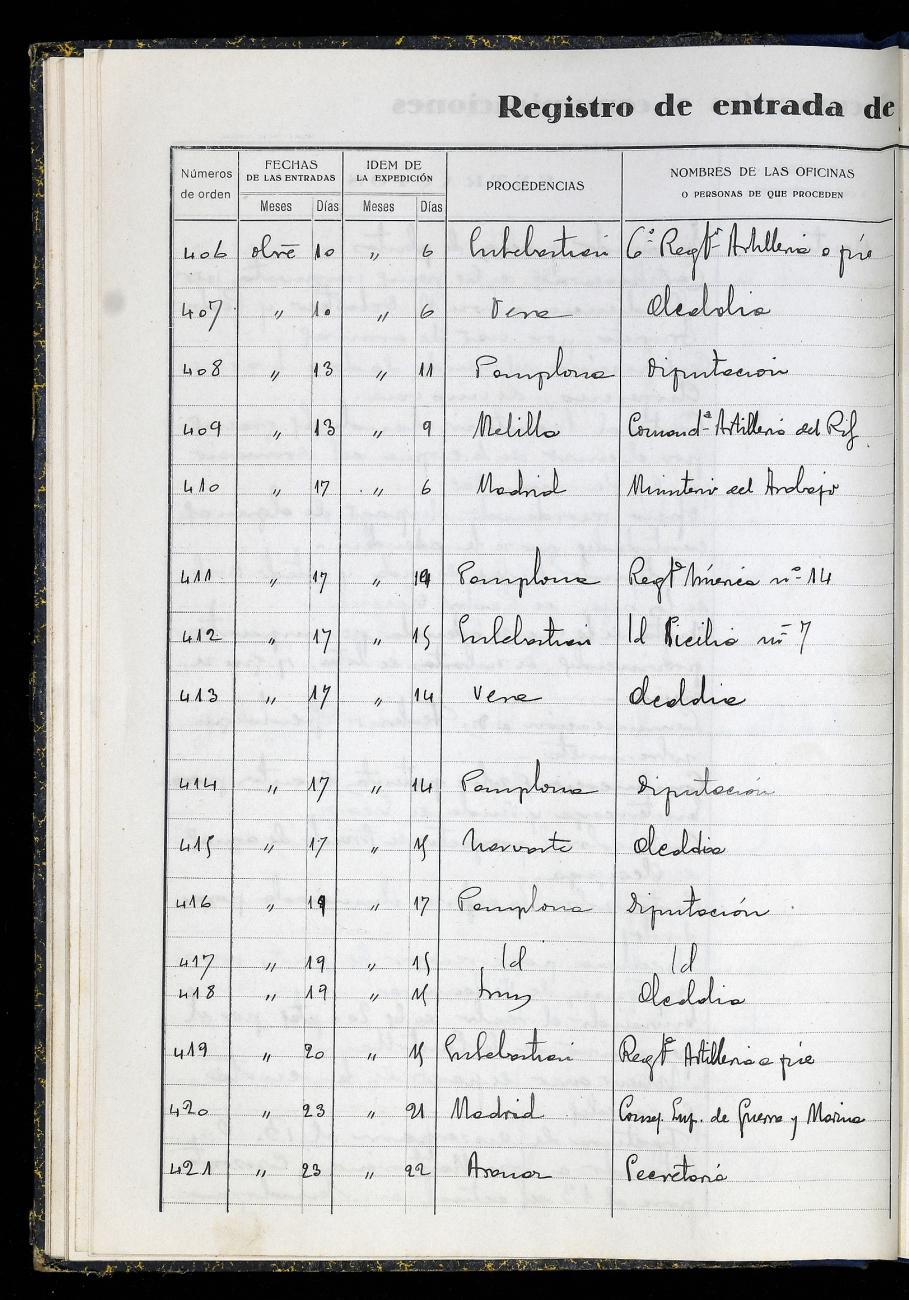 Registro de entrada de
Números de orden
FECHAS DE LAS ENTRADAS
IDEM DE LA EXPEDICIÓN
PROCEDENCIAS
NOMBRES DE LAS OFICINAS O PERSONAS DE QUE PROCEDEN
Meses Días Meses Días
406 10 " 6 Sn Sebastian 6º Regtº Artilleria a pie
407 " 10 " 6 Vera Alcaldia
408 " 13 " 11 Pamplona Diputacion
409 " 13 " 9 Melilla Comandª Artilleria del Rif
410 " 17 " 6 Madrid Ministerio del Trabajo
411 " 17 " Pamplona Regtº América nº 14
412 " 17 " 15 Sn Sebastian Id Sicilia nº 7
413 " 17 " 14 Vera Alcaldia
414 " 17 " 14 Pamplona Diputación
415 " 17 " 15 Narvarte Alcaldia
416 " 19 " 17 Pamplona Diputación
417 " 19 " 15 Id Id
418 " 19 " 15 Irun Alcaldia
419 " 20 " 15 Sn Sebastian Regtº Artilleria a pie
420 " 23 " 21 Madrid Consej. Sup. de Guerra y Marina
421 " 23 " 22 Aranaz Secretaria